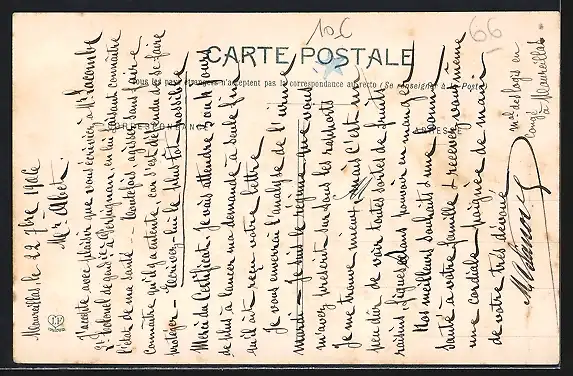 10c
66
CARTE POSTALE
Tous les pays étrangers n'acceptent pas la correspondance au recto (Se renseigner à la Poste)
CORRESPONDANCE
ADRESSE
Maureillas, le 22 7bre 1906
Mr. Albet.
J'accepte avec plaisir que vous écriviez à Mr Lacombe
Lt Colonel de à Perpignan, en lui faisant connaître
l'état de ma santé. - Toutefois, agissez sans
connaître qu'il y a entente, car il est défendu de se faire
protéger - Ecrivez-lui le plus tôt possible
Merci du Certificat. Je vais attendre 5 ou 6 jours
de plus à lancer ma demande, à seule fin
qu'il ait reçu votre lettre
Je vous enverrai l'analyse de l'urine
mardi - Je suis le régime que vous
m'avez prescrit sur tous les rapports
Je me trouve mieux, mais c'est un
de voir toutes sortes de fruits
raisins, figues & sans pouvoir en manger
Nos meilleurs souhaits d'une bonne
santé à votre famille & recevez vous même
une cordiale poignée de main
de votre très dévoué
Mal des logis en
congé à Maureillas